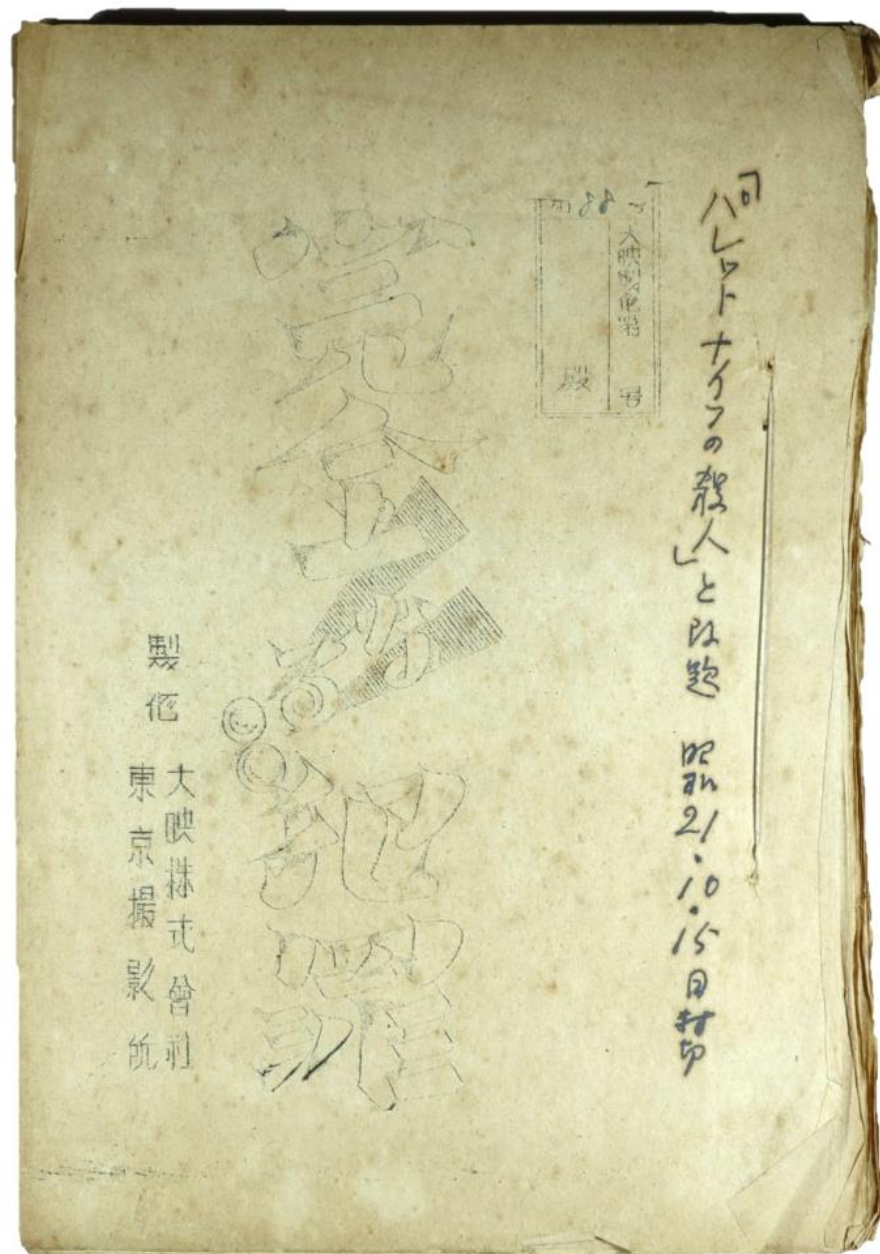 「パレットナイフの殺人」と改題 昭和21・10・15日封切
大映製作第 号
殿
完全犯罪
製作 大映株式會社
東京撮影所